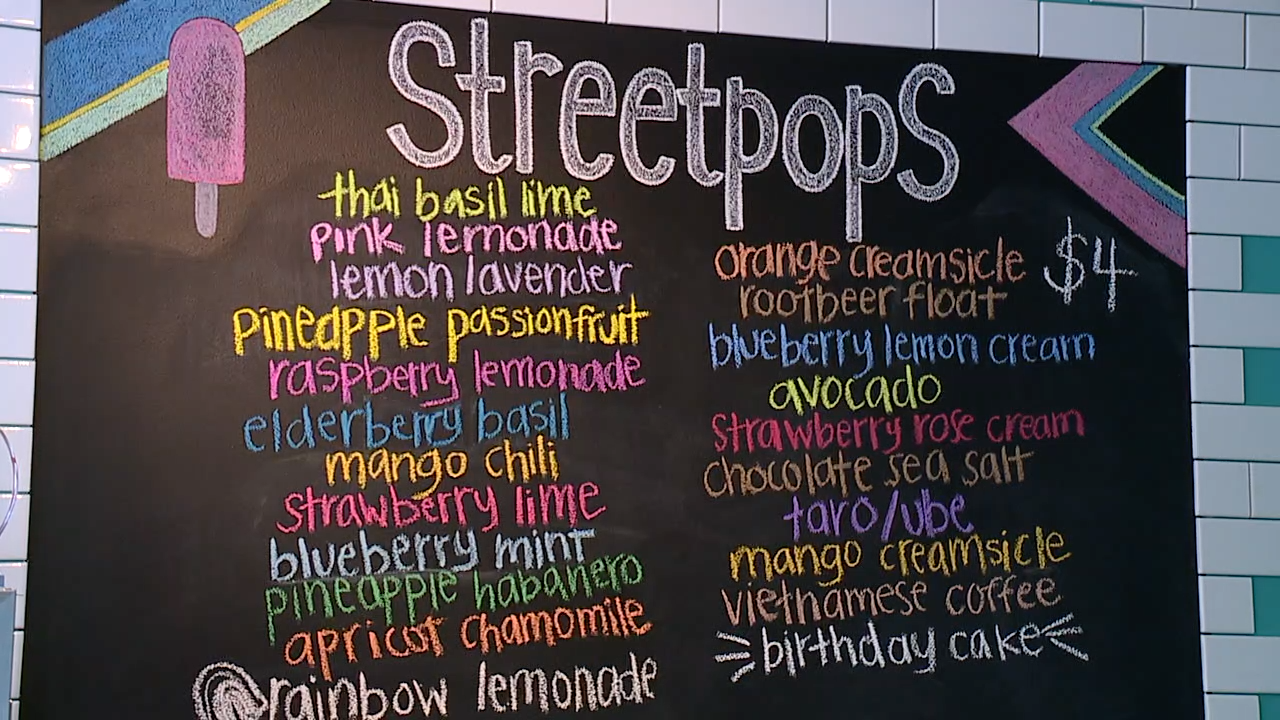 Streetpops
thai basil lime
pink lemonade
lemon lavender
pineapple passionfruit
raspberry lemonade
elderberry basil
mango chili
strawberry lime
blueberry mint
pineapple habanero
apricot chamomile
rainbow lemonade
orange creamsicle
$4
rootbeer float
blueberry lemon cream
avocado
strawberry rose cream
chocolate sea salt
taro/ube
mango creamsicle
vietnamese coffee
birthday cake